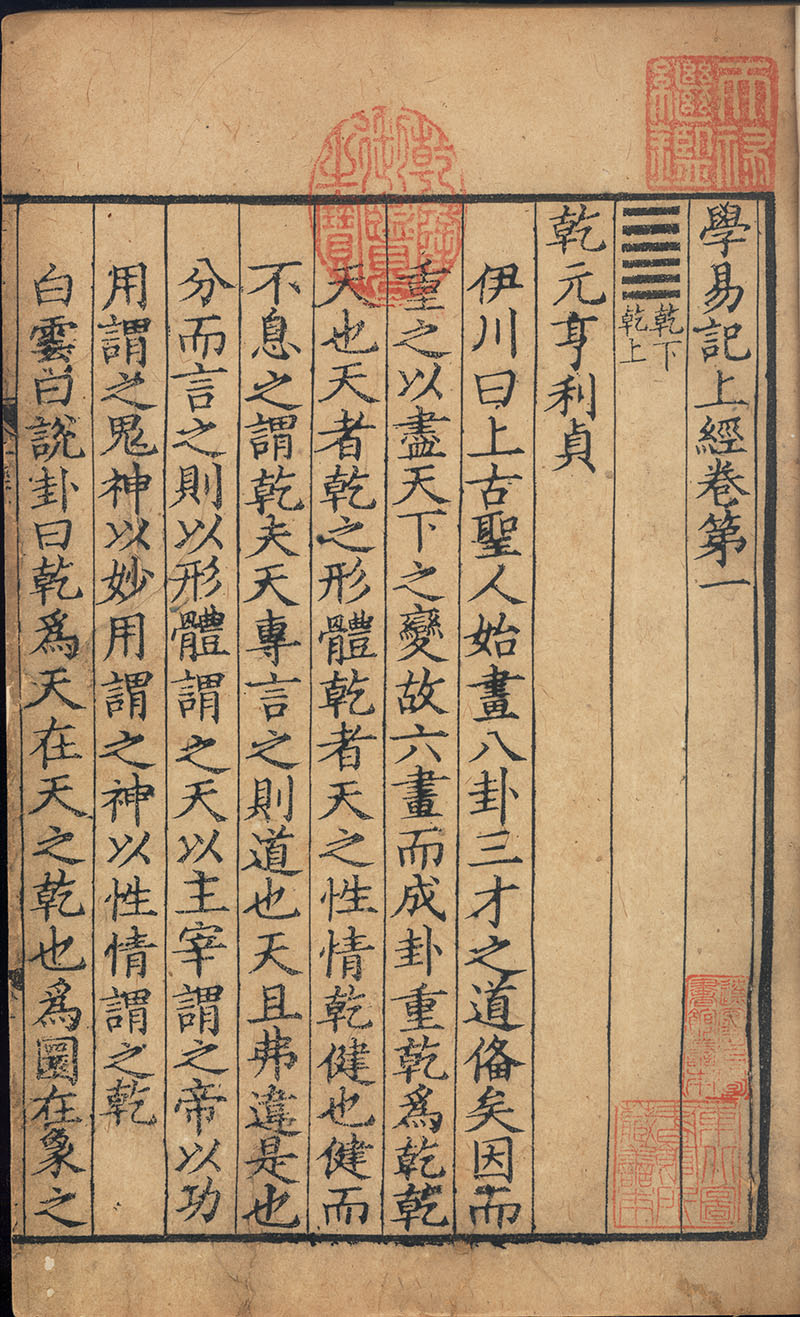 學易記上經卷第一
乾下
乾上
乾元亨利貞
伊川曰上古聖人始畫八卦三才之道俻矣因而
重之以盡天下之變故六畫而成卦重乾爲乾乾
天也天者乾之形體乾者天之性情乾健也健而
不息之謂乾夫天專言之則道也天且弗違是也
分而言之則以形體謂之天以主宰謂之帝以功
用謂之鬼神以妙用謂之神以性情謂之乾
白雲曰說卦曰乾爲天在天之乾也爲圜在象之
天祿
繼鑑
乾隆
御覽
之寶